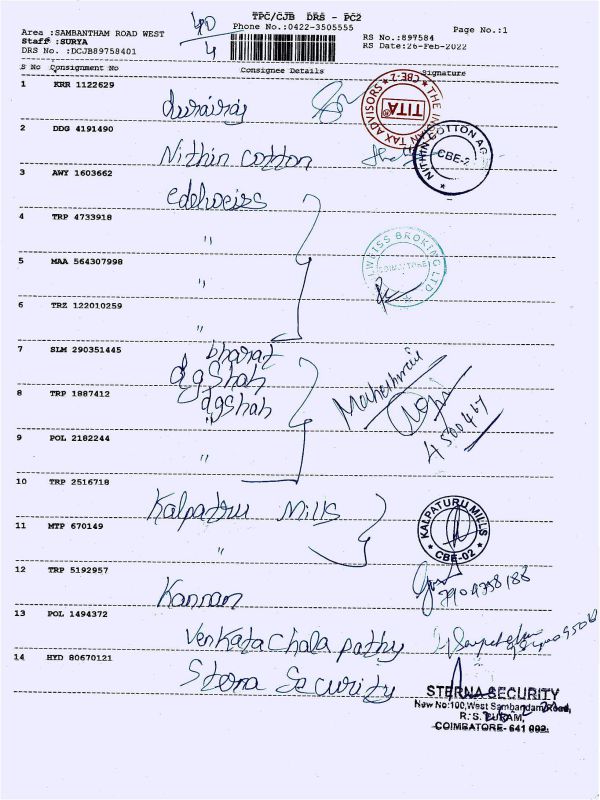 TPC/CJB DRS - PC2
Area :SAMBANTHAM ROAD WEST
Phone No.:0422-3505555
Page No.:1
Staff :SURYA
RS No.:897584
DRS No. :DCJB89758401
RS Date:26-Feb-2022
S No Consignment No Consignee Details Signature
1 KRR 1122629
durairaj
THE INDIAN TAX ADVISORS * CBE-2 *
TITA
2 DDG 4191490
Nithin cotton
NITHIN COTTON AG
CBE-2
3 AWY 1603662
edelweiss
4 TRP 4733918
"
5 MAA 564307998
"
LWEISS BROKING LTD.
COIMBATORE
6 TRZ 122010259
"
7 SLM 290351445
bharat
dgshah
8 TRP 1887412
dgshah
"
9 POL 2182244
"
10 TRP 2516718
Kalpatru Mills
KALPATURU MILLS
* CBE-02 *
11 MTP 670149
"
12 TRP 5192957
Kannan
13 POL 1494372
Venkatachala pathy
14 HYD 80670121
Sterna Security
STERNA SECURITY
New No:100,West Sambandam Road,
R.S. PURAM,
COIMBATORE- 641 002.